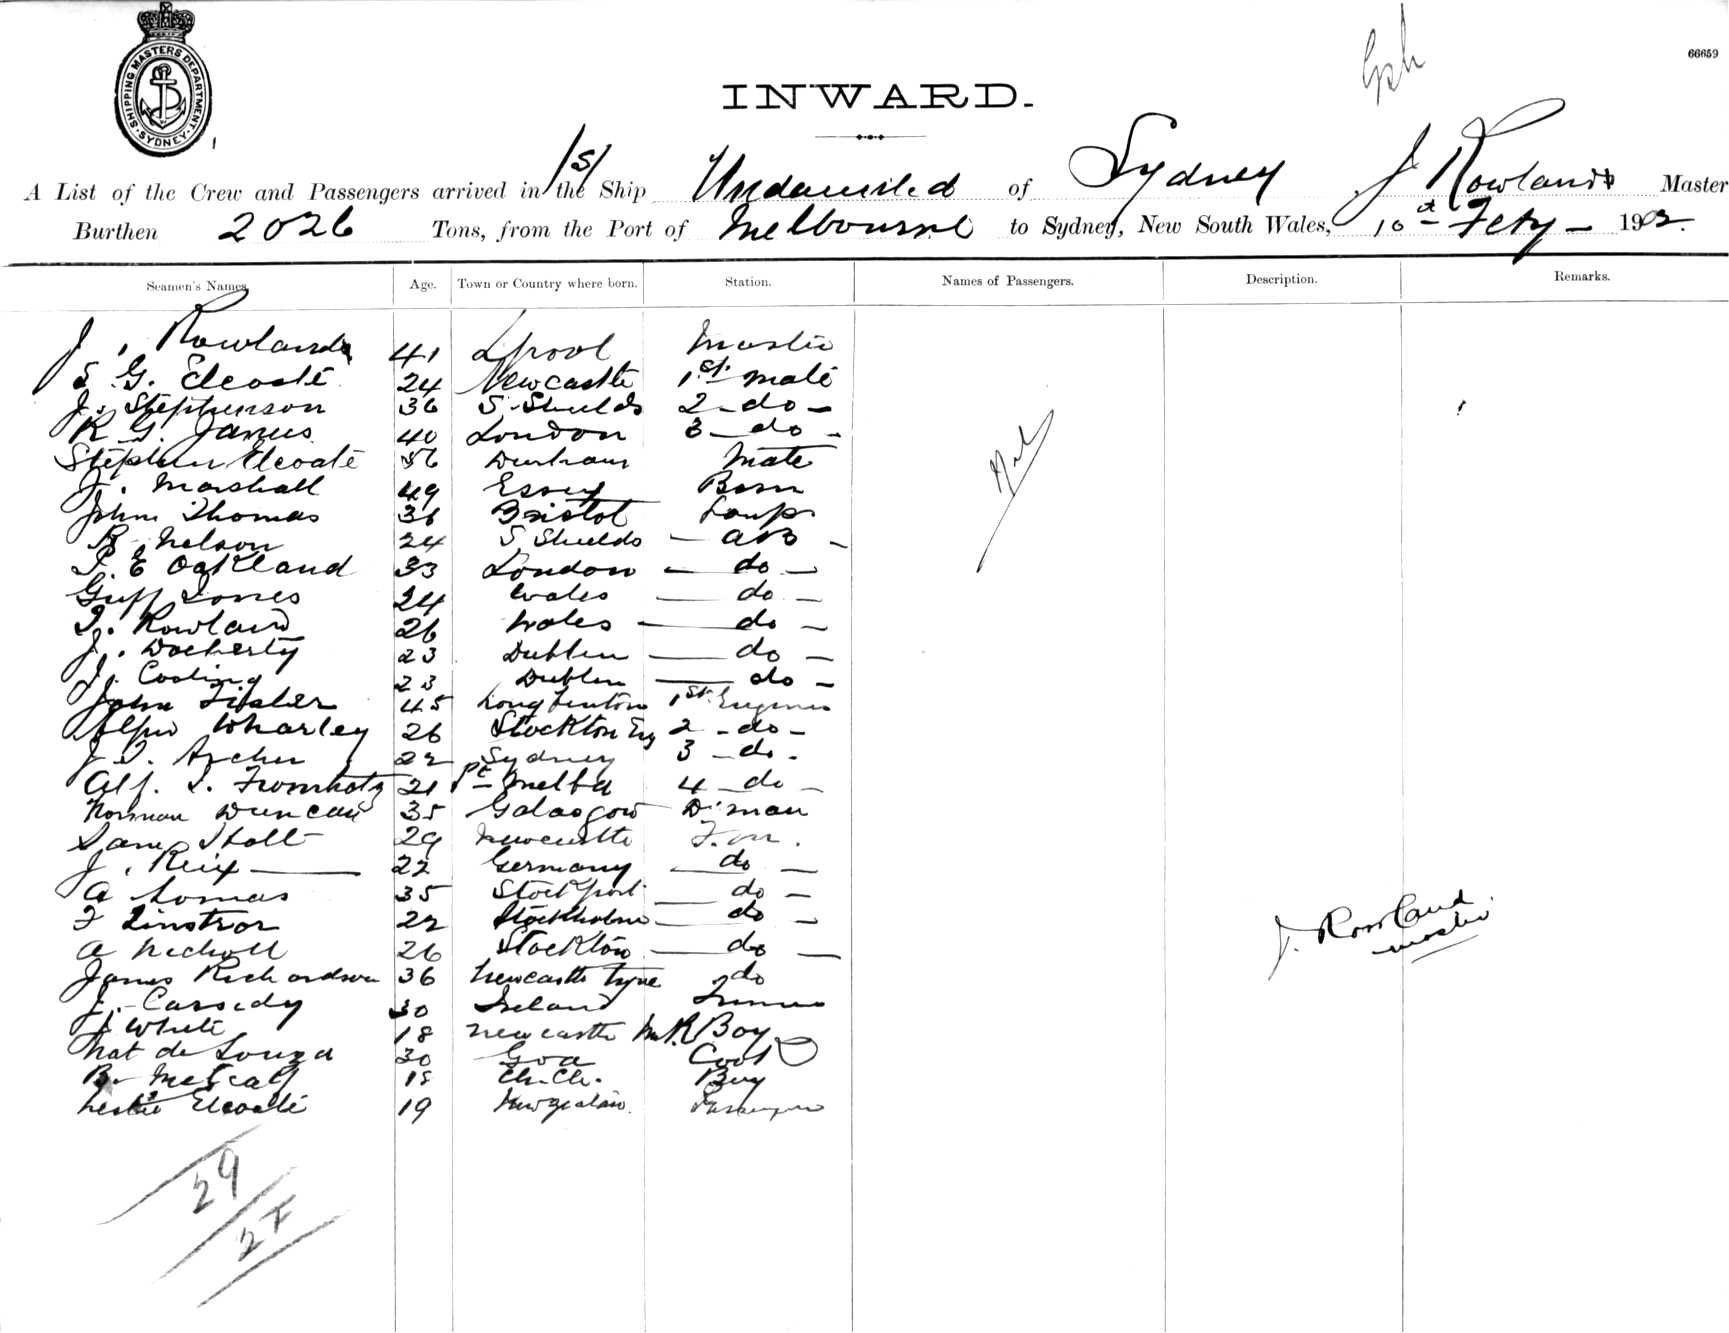 SHIPPING MASTERS DEPARTMENT. SYDNEY
66659
INWARD.
A List of the Crew and Passengers arrived in the S/S Ship Undaunted of Sydney J Rowlands Master
Burthen 2026 Tons, from the Port of Melbourne to Sydney, New South Wales, 10th Feby 1902.
Seamen's Names. Age. Town or Country where born. Station. Names of Passengers. Description. Remarks.
J. Rowlands 41 Lpool Master
S G. Elcoate 24 Newcastle 1st mate
J. Stephenson 36 S. Shields 2 - do -
R G. 40 London 3 - do -
Stephen Elcoate 56 Durham Mate
J. Marshall 49 Essex Bosn
John Thomas 36 Bristol Lamps
R. Nelson 24 S Shields - AB -
T. E Oakland 33 London - do -
Griff Jones 24 Wales - do -
Rowland 26 Wales - do -
J. Docherty 23 Dublin - do -
J. Cooling 23 Dublin - do -
John Fisher 45 Long 1st Engineer
Alfred Wharley 26 Stockton Eng 2 - do -
J. T. Archer 22 Sydney 3 - do -
Alf. Fromhotz 21 Pt Melba 4 - do -
Norman Duncan 35 Galasgow D'man
Sam Stott 29 Newcastle F. m.
J. Reix 22 Germany - do -
A Lomas 35 Stockport - do -
F Linstror 22 Stockholm - do -
A Nicholl 26 Stockton - do -
James Richardson 36 Newcastle Tyne do
J. Cassidy 30 Ireland Trimmer
J White 18 Newcastle M. R. Boy
Nat de Souza 30 Goa Cook
B. Metcalf 18 Ch. Ch. Boy
Leslie Elcoate 19 New Zealand Passenger
Nil
J. Rowland
Master
29
27